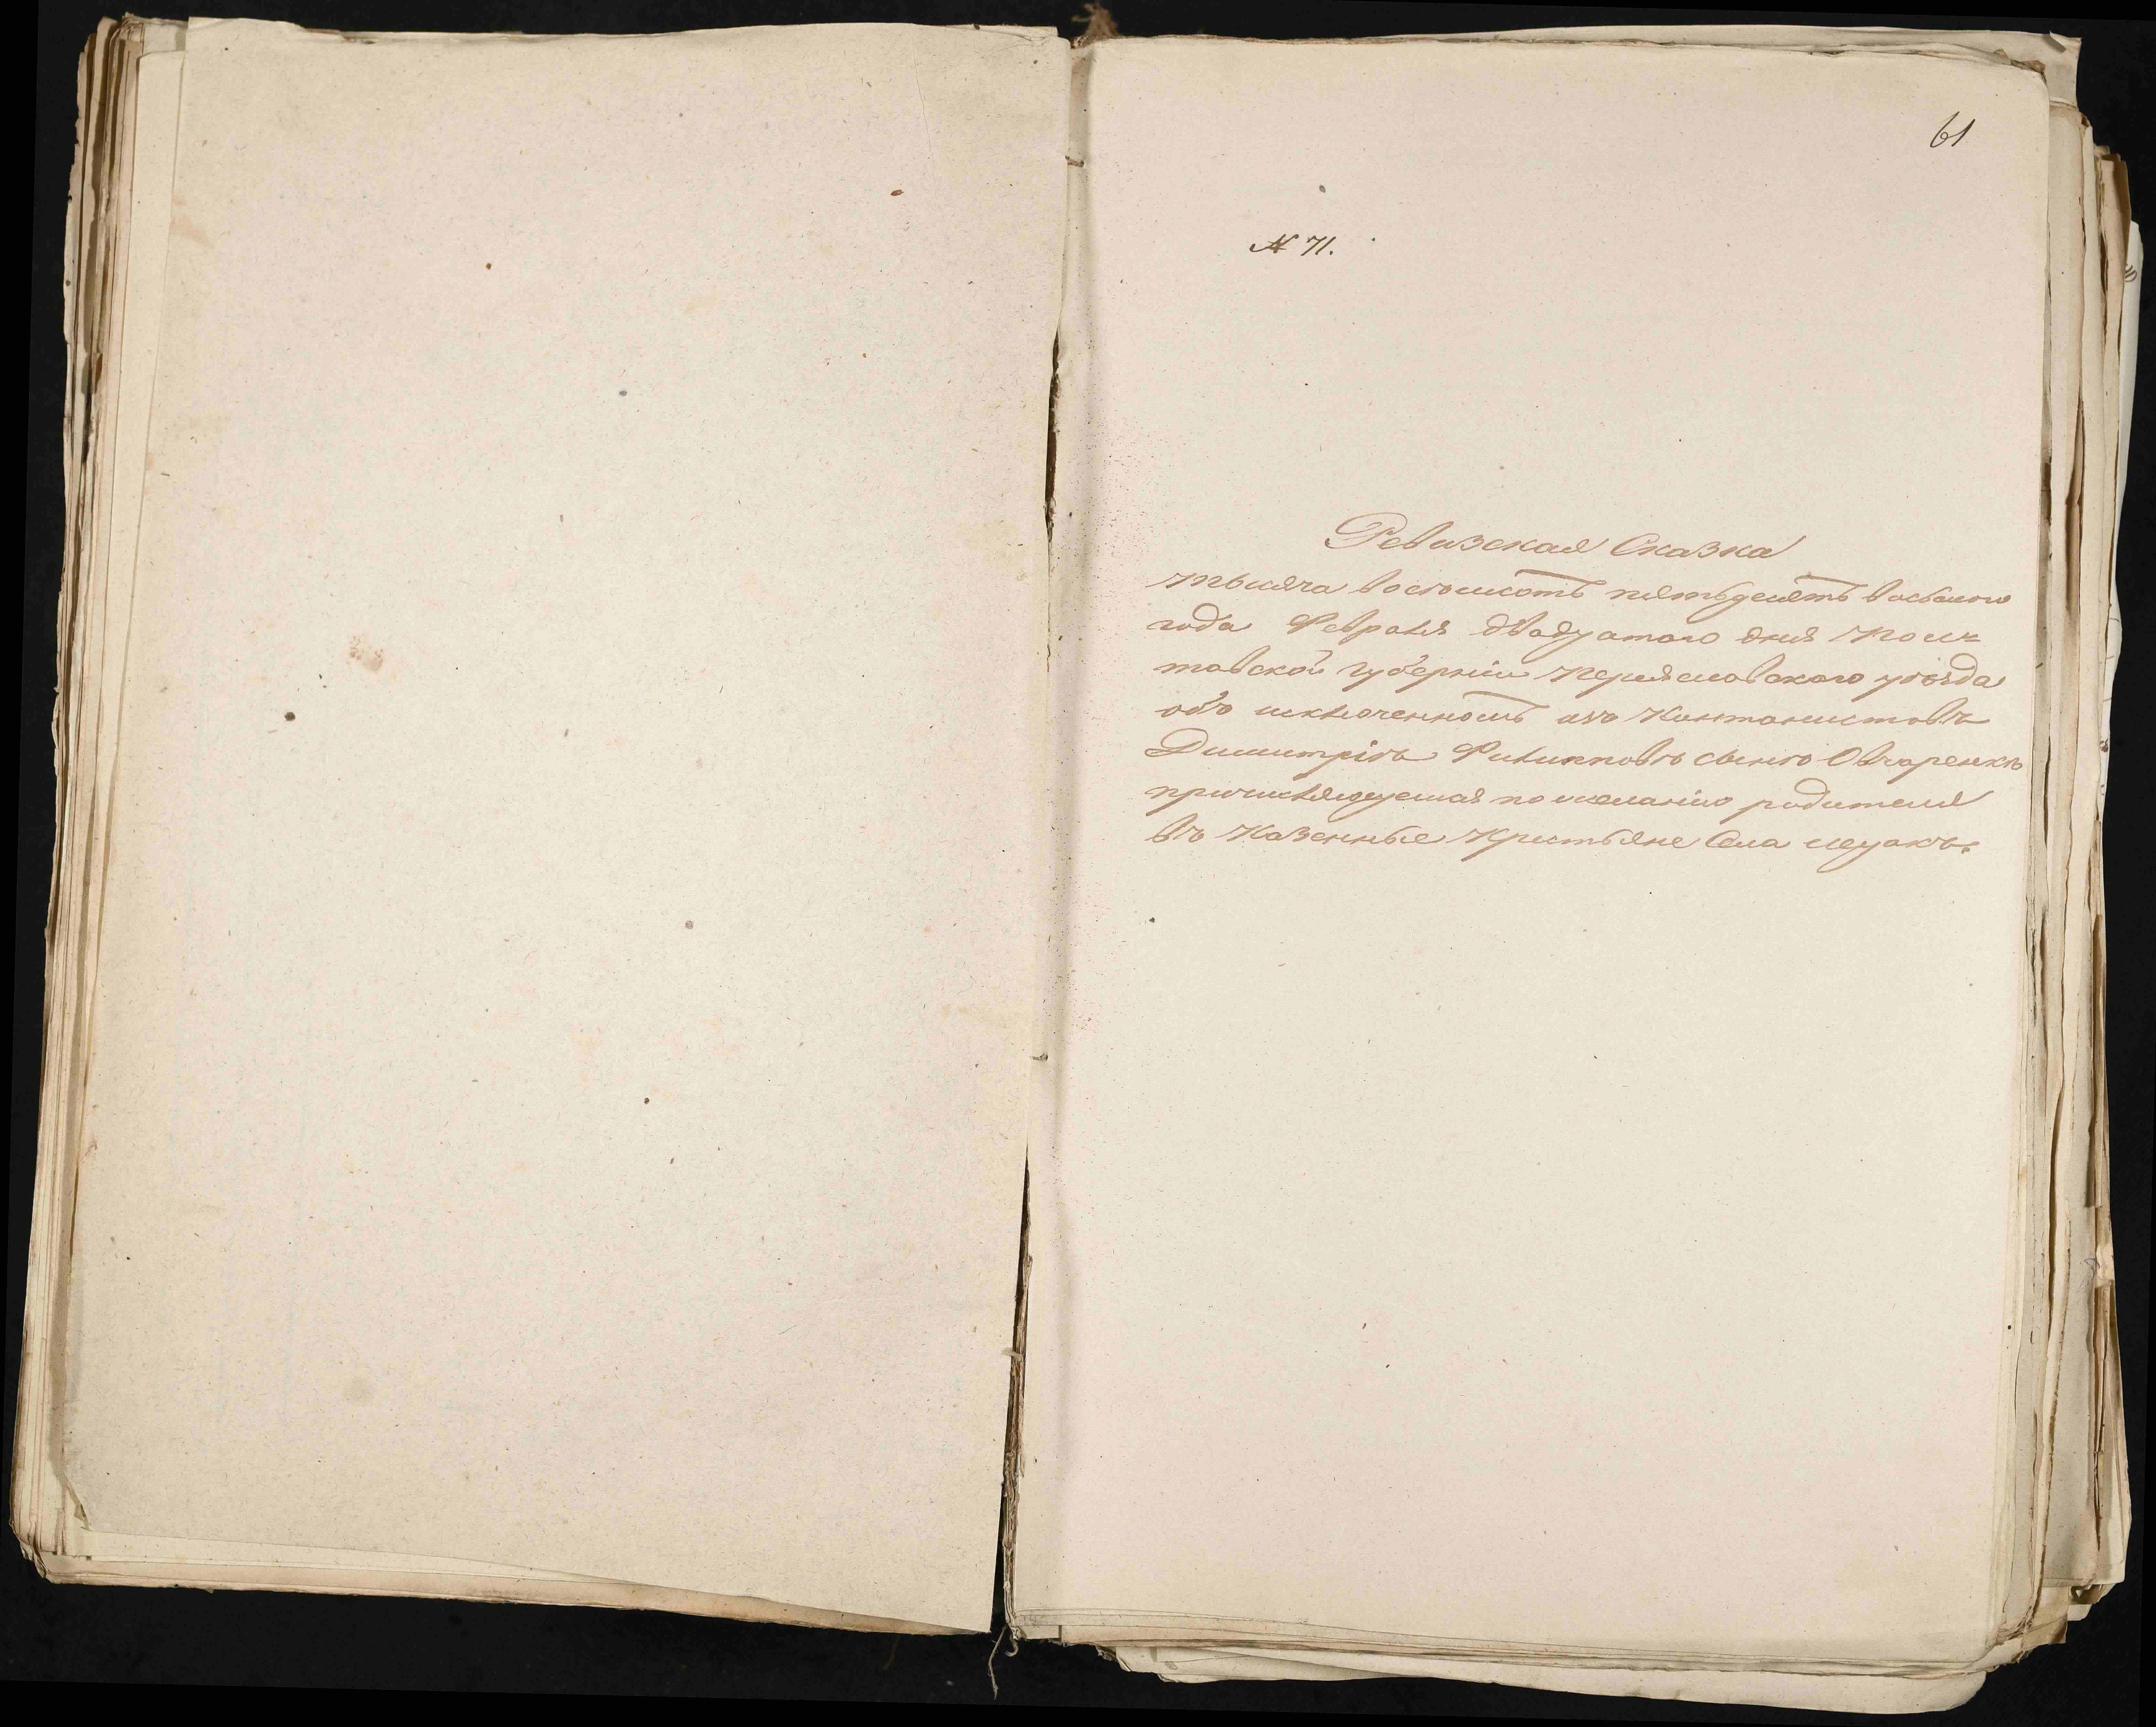 61
№ 71.
Ревизская Сказка
тысяча восемсотъ пятьдесятъ восьмого
года Февраля двадцатого дня Пол-
тавской губернии Переяславского уѣзда
объ исключенномъ изъ Кантонистовъ
Димитріѣ Филипповѣ сынѣ Овчаренкѣ
по желанію родителя
въ Казенные Крестьяне Села